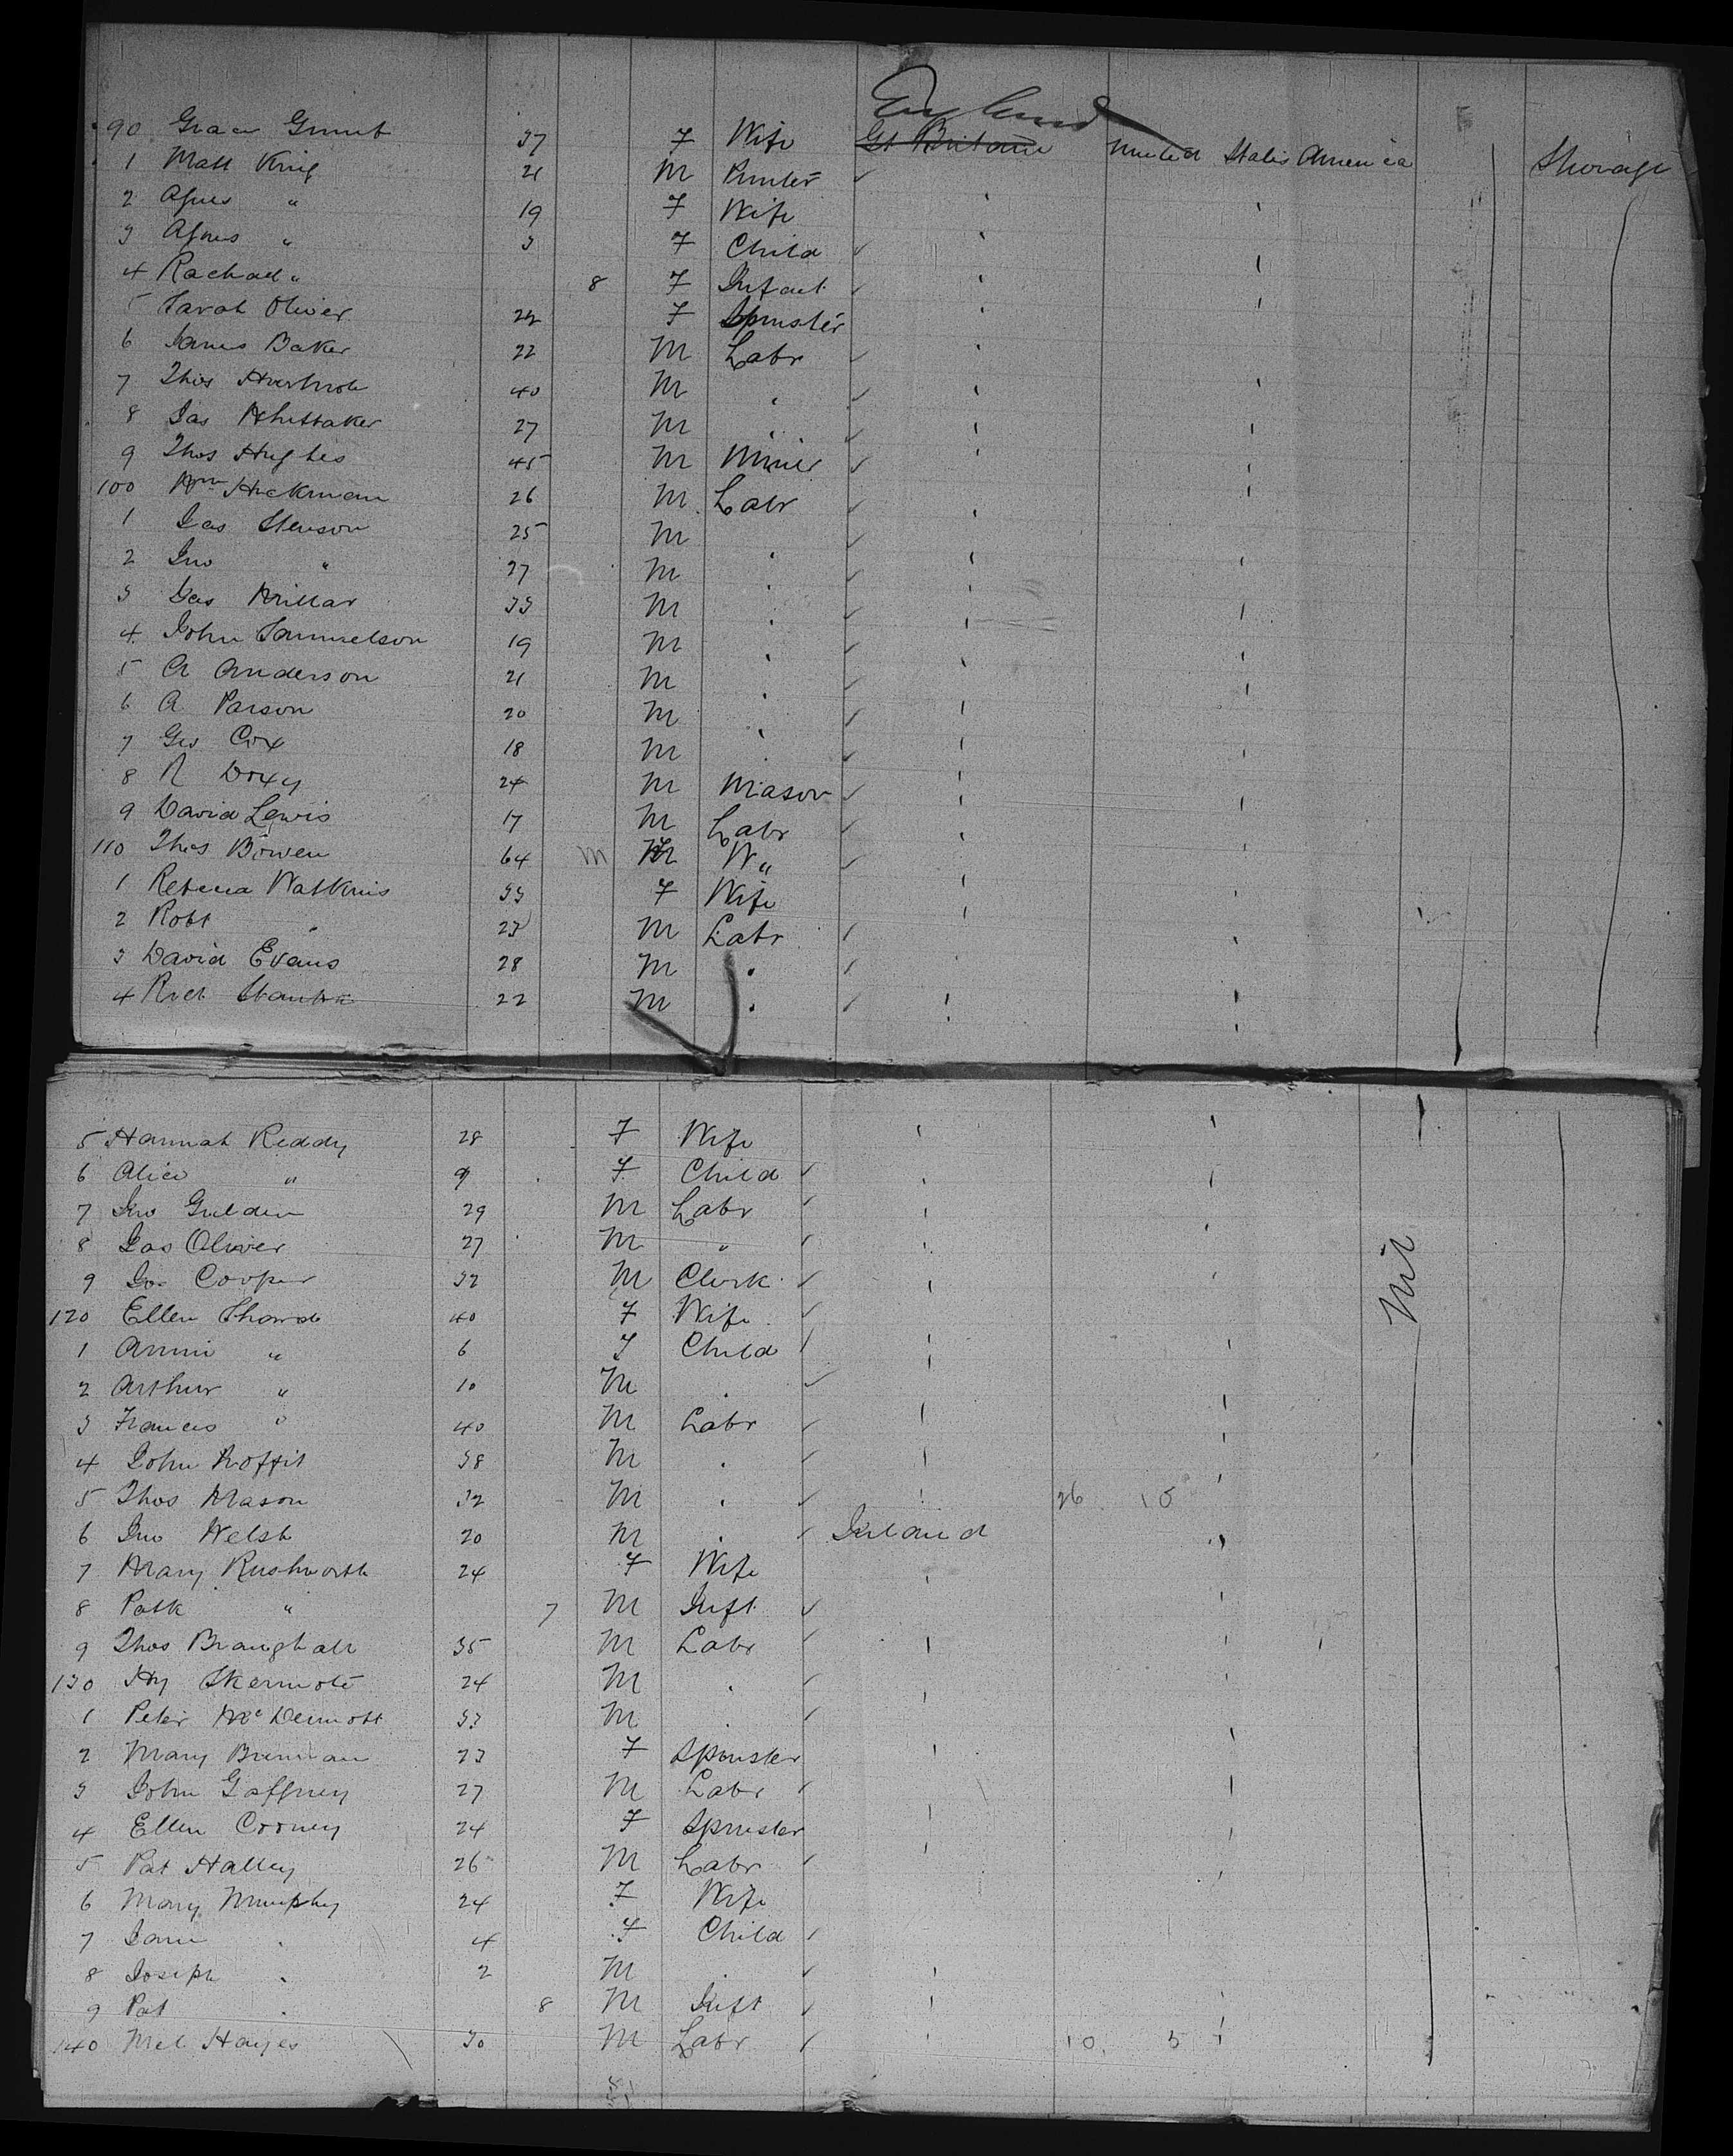 England
90 Grace Grunt 37 F Wife Gt Britain United States America Steerage
1 Matt King 21 M Printer
2 Agnes " 19 F Wife
3 Agnes " 3 F Child
4 Rachael " 8 F Infant
5 Sarah Oliver 22 F Spinster
6 James Baker 22 M Labr
7 Thos 40 M
8 Jas Whittaker 27 M
9 Thos Hughes 45 M Miner
100 Wm Hickman 26 M Labr
1 Jas Stenson 25 M
2 Jno " 27 M
3 Jas Millar 33 M
4 John Sammelson 19 M
5 A Anderson 21 M
6 A Parson 20 M
7 Geo Cox 18 M
8 R Doxy 24 M Mason
9 David Lewis 17 M Labr
110 Thos Bowen 64 M M "
1 Rebecca Watkins 33 F Wife
2 Robt " 23 M Labr
3 David Evans 28 M
4 Rich 22 M
5 Hannah Reddy 28 F Wife
6 Alice " 9 F Child
7 Jno Gulden 29 M Labr
8 Jas Oliver 27 M "
9 Jos Cooper 32 M Clerk Nil
120 Ellen 40 F Wife
1 Annie " 6 F Child
2 Arthur " 10 M
3 Frances " 40 M Labr
4 John Moffit 38 M
5 Thos Mason 32 M 26 15
6 Jno Welsh 20 M Ireland
7 Mary Rushworth 24 F Wife
8 Patk " 7 M Inft
9 Thos Branghall 35 M Labr
130 Hy Skermote 24 M
1 Peter McDermott 33 M
2 Mary Brennan 23 F Spinster
3 John Gaffney 27 M Labr
4 Ellen Cooney 24 F Spinster
5 Pat Halley 26 M Labr
6 Mary Murphy 24 F Wife
7 Jane 4 F Child
8 Joseph 2 M
9 Pat 8 M Inft
140 Mcl Hayes 30 M Labr 10. 5